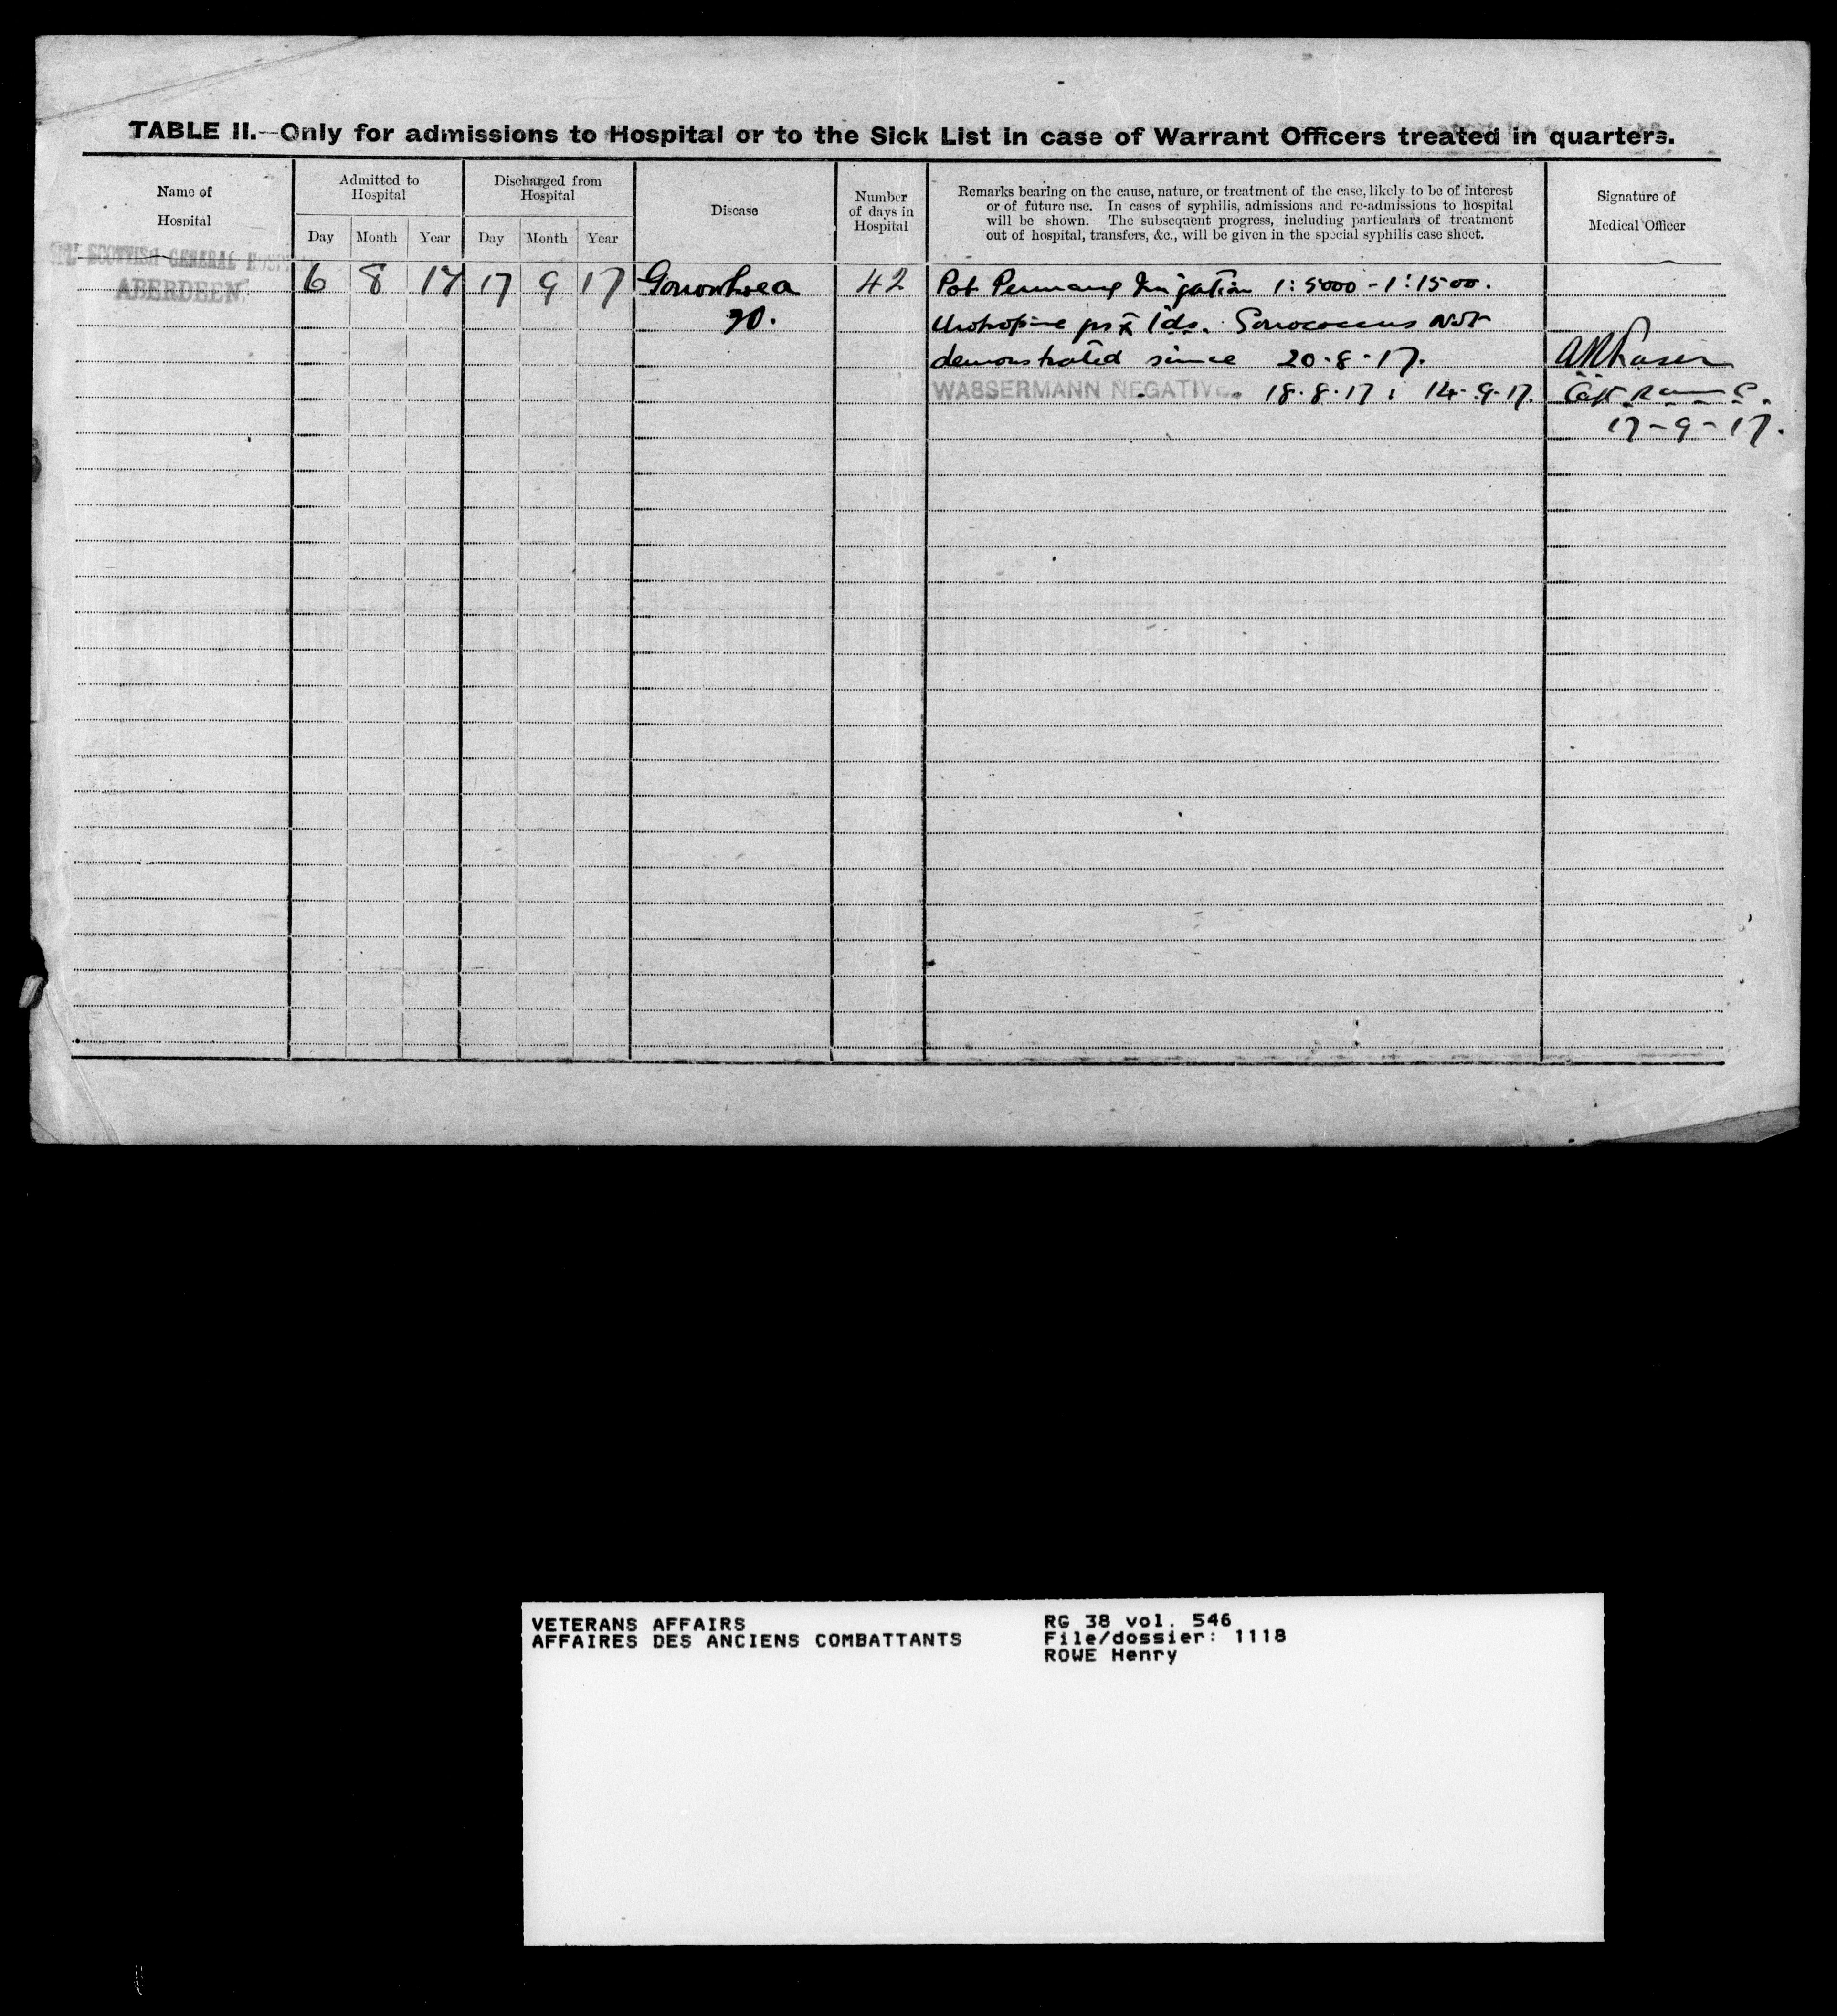 TABLE II.—Only for admissions to Hospital or to the Sick List in case of Warrant Officers treated in quarters.
Name of Hospital
Admitted to Hospital
Discharged from Hospital
Disease
Number of days in Hospital
Remarks bearing on the cause, nature, or treatment of the case, likely to be of interest
or of future use. In cases of syphilis, admissions and re-admissions to hospital
will be shown. The subsequent progress, including particulars of treatment
out of hospital, transfers, &c., will be given in the special syphilis case sheet.
Signature of Medical Officer
Day Month Year Day Month Year
SCOTTISH GENERAL HOSPI
ABERDEEN.
6 8 17 17 9 17 Gonorrhoea 42 Pot Permang Irrigation 1:5000 - 1:1500.
Urotropine grs x tds. Gonococcus not
demonstrated since 20-8-17.
WASSERMANN NEGATIVE. 18.8.17 : 14-9-17.
Capt
17-9-17.
VETERANS AFFAIRS
AFFAIRES DES ANCIENS COMBATTANTS
RG 38 vol. 546
File/dossier: 1118
ROWE Henry